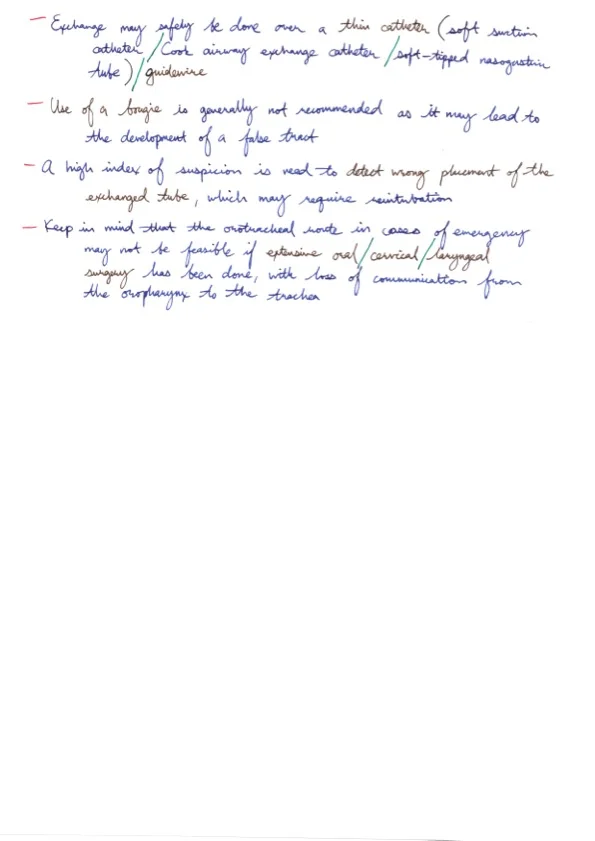 — Exchange may safely be done over a thin catheter (soft suction
catheter / Cook airway exchange catheter / soft-tipped nasogastric
tube) / guidewire
— Use of a bougie is generally not recommended as it may lead to
the development of a false tract
— A high index of suspicion is need to detect wrong placement of the
exchanged tube, which may require reintubation
— Keep in mind that the orotracheal route in cases of emergency
may not be feasible if extensive oral / cervical / laryngeal
surgery has been done, with loss of communication from
the oropharynx to the trachea